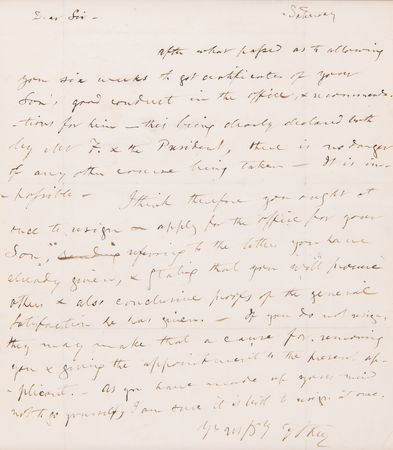 Dear Sir - Saturday
after what passed as to allowing
you six weeks to get certificates of your
Son's good conduct in the office, & recommenda-
tions for him - this being clearly declared both
by Mr F. & the President, there is no danger
of any other course being taken - It is im-
-possible - I think therefore you ought at
once to resign & apply for the office for your
Son, referring to the letters you have
already given, & stating that you will procure
others & also conclusive proofs of the general
satisfaction he has given. - If you do not resign,
they may make that a cause for removing
you & giving the appointment to the present ap-
-plicant. - As you have made up your mind
not to go yourself, I am sure it is best to resign at once.
Yrs